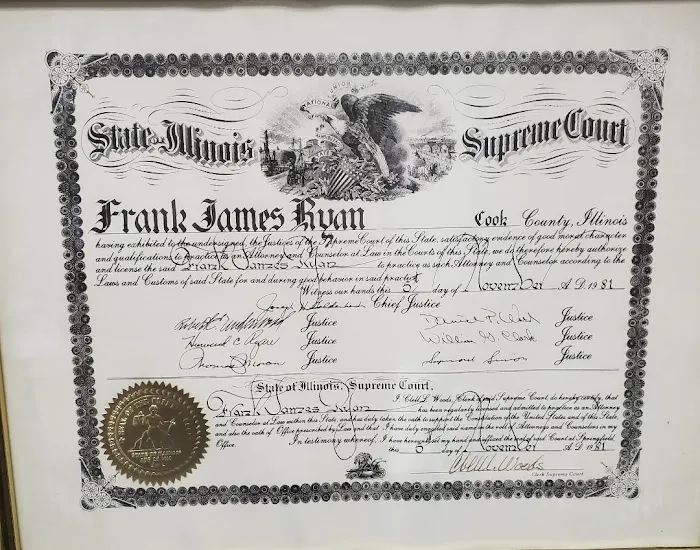 State of Illinois Supreme Court
Frank James Ryan Cook County, Illinois
having exhibited to the undersigned, the Justices of the Supreme Court of this State, satisfactory evidence of good moral character
and qualifications to practice as an Attorney and Counselor at Law in the Courts of this State, we do therefore hereby authorize
and license the said Frank James Ryan to practice as such Attorney and Counselor according to the
Laws and Customs of said State for and during good behavior in said practice.
Witness our hands this 5 day of November A.D. 1981
Chief Justice
Justice Justice
Howard C. Ryan Justice William G. Clark Justice
Thomas J. Moran Justice Seymour Simon Justice
State of Illinois, Supreme Court,
I Cell L. Woods, Clerk of said Supreme Court, do hereby certify, that
Frank James Ryan has been regularly licensed and admitted to practice as an Attorney
and Counselor at Law within this State and has duly taken the oath to support the Constitution of the United States and of this State
and also the oath of Office prescribed by Law and that I have duly enrolled said name in the roll of Attorneys and Counselors in my
Office.
In testimony whereof, I have hereunto set my hand and affixed the seal of said Court at Springfield,
this 5 day of November A.D. 1981
Clerk Supreme Court